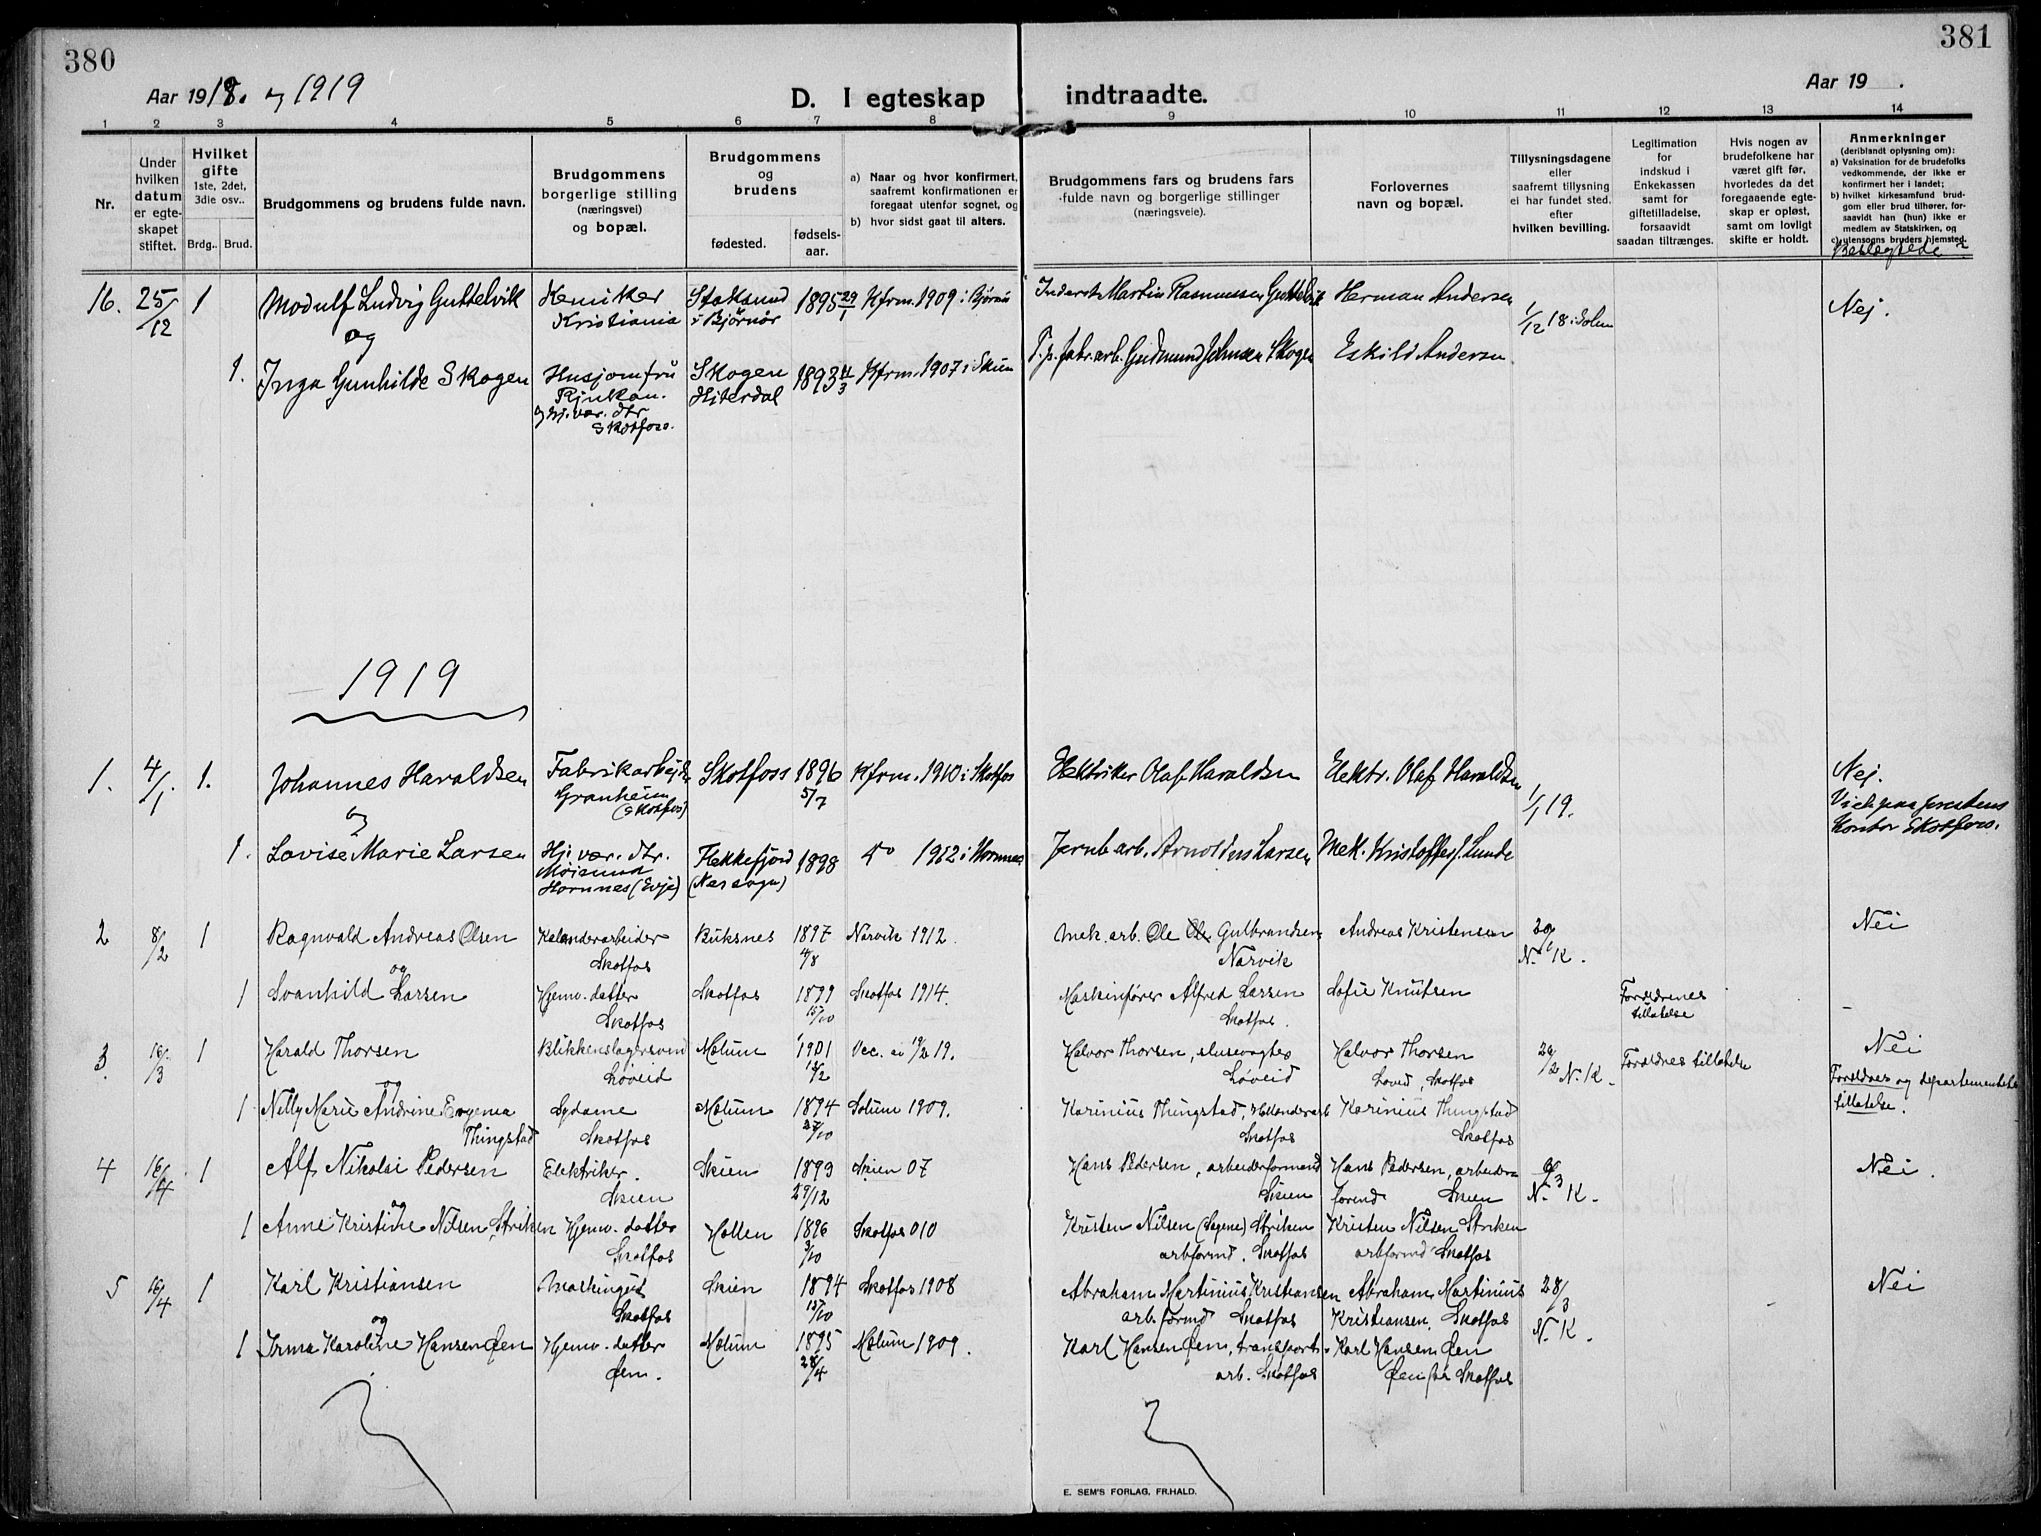 380
381
Aar 1918. og 1919
D. I egteskap indtraadte.
Aar 19 .
1 2 3 4 5 6 7 8 9 10 11 12 13 14
Nr.
Under hvilken datum er egteskapet stiftet.
Hvilket gifte 1ste, 2det, 3die osv..
Brdg.. Brud.
Brudgommens og brudens fulde navn.
Brudgommens borgerlige stilling (næringsvei) og bopæl.
Brudgommens og brudens
fødested.
fødselsaar.
a) Naar og hvor konfirmert, saafremt konfirmationen er foregaat utenfor sognet, og
b) hvor sidst gaat til alters.
Brudgommens fars og brudens fars fulde navn og borgerlige stillinger (næringsveie).
Forlovernes navn og bopæl.
Tillysningsdagene eller saafremt tillysning ei har fundet sted, efter hvilken bevilling.
Legitimation for indskud i Enkekassen samt for giftetilladelse, forsaavidt saadan tiltrænges.
Hvis nogen av brudefolkene har været gift før, hvorledes da det foregaaende egteskap er opløst, samt om lovligt skifte er holdt.
Anmerkninger
(deriblandt oplysning om):
a) Vaksination for de brudefolks vedkommende, der ikke er konfirmert her i landet;
b) hvilket kirkesamfund brudgom eller brud tilhører, forsaavidt han (hun) ikke er medlem av Statskirken, og
c) utensogns bruders hjemsted.
Beslegtede?
16. 25/12 1 Modulf Ludvig Guttelvik Kemiker Stoksund 1895 29/1 Kfrm. 1909 i Bjørnør Martin Rasmussen Guttelvik Herman Andersen 1/12 18 i Solum Nej.
og Kristiania i Bjørnør
1. Inga Gunhilde Skogen Husjomfru Skogen 1893 Kfrm. 1907 i Skien F. p. fabr.arb. Gudmund Johnsen Skogen Eskild Andersen
Rjukan. Hiterdal
og hj. vær. dtr.
Skotfoss.
1919
1. 4/1. 1. Johannes Haraldsen Fabrikarbejder Skotfoss 1896 Kfrm. 1910 i Skotfos Elektriker Olaf Haraldsen Elektr. Olaf Haraldsen 1/1 19. Nej.
og Granheim 5/7 Viet paa prestens
(Skotfos) Kontor Skotfoss.
1. Lovise Marie Larsen Hj. vær. dtr. Flekkefjord 1898 do 1912 i Hornnes Jernb arb. Arnoldus Larsen Mek. Kristoffer J. Lunde
Moisund (Næs sogn)
Hornnes (Evje)
2 8/2 1 Ragnvald Andreas Olsen Kalanderarbeider Buksnes 1897 Narvik 1912. Mek. arb. Ole Gulbrandsen Andreas Kristensen 29/1 Nei
og Skotfos 4/8 Narvik N. K.
1 Svanhild Larsen Hjemv. datter Skotfos 1899 Skotfos 1914. Maskinfører Alfred Larsen Sofie Knutsen Forældrenes
Skotfos 15/10 Skotfos. tillatelse
3. 16/3 1 Harald Thorsen Blikkenslagersvend Melum 1901 Vac. av 19/2 19. Halvor Thorsen, slusevogter Halvor Thorsen 26/2 N. K. Foreldres tillatelse Nei
og Løveid 12/2 Løveid Loveid, Skotfos Foreldres og departementets
1 Nelly Marie Andrine Evgenia Sydame Melum 1894 Solum 1909. Karinius Thingstad, Hollenderarb Karinius Thingstad tillatelse.
Thingstad Skotfos 27/10 Skotfos Skotfos
4 16/4 1 Alf Nikolai Pedersen Elektriker. Skien 1893 Skien 07 Hans Pedersen, arbeiderformand Hans Pedersen, arbeider- Nei.
og Skien 29/12 Skien formd Skien N. K.
1 Anne Kristine Nilsen Striken Hjemv. datter Hollen 1896 Skotfos 010 Kristen Nilsen Striken Kristen Nilsen Striken
Skotfos 3/10 arbformd. Skotfos arbformd Skotfos
5 16/4 1 Karl Kristiansen Maskingut Skien 1894 Skotfos 1908 Abraham Martinius Kristiansen Abraham Martinius 28/3 Nei
og Skotfos 15/10 arb.formd Skotfos Kristiansen, Skotfos N. K.
1 Irma Karoline Hansen Øen Hjemv. datter Melum 1895 Melum 1909. Karl Hansen Øen, transport- Karl Hansen Øen
Øen. 28/4 arb. Skotfos Øen pr Skotfos
E. SEM'S FORLAG, FR.HALD.